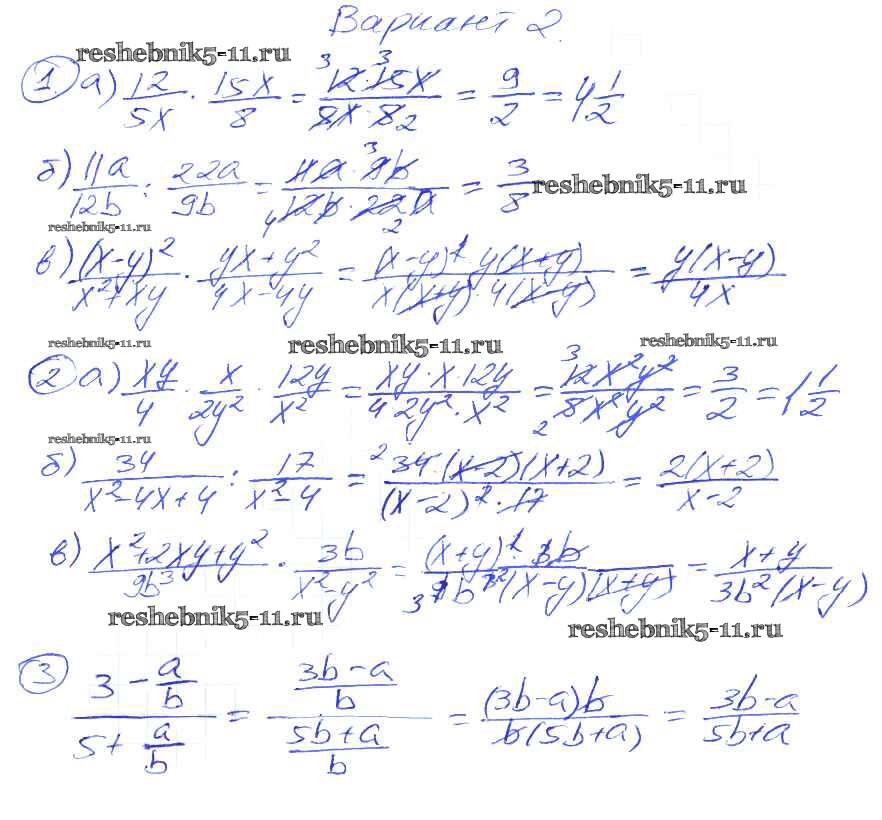 Вариант 2.
reshebnik5-11.ru
1 а) 12/5x · 15x/8 = 12·15x/8x·8 = 9/2 = 4 1/2
б) 11a/12b : 22a/9b = 11a·9b/12b·22a = 3/8 reshebnik5-11.ru
reshebnik5-11.ru
в) (x-y)²/x²+xy · yx+y²/4x-4y = (x-y)² y(x+y)/x(x+y)·4(x-y) = y(x-y)/4x
reshebnik5-11.ru reshebnik5-11.ru reshebnik5-11.ru
2 а) xy/4 · x/2y² · 12y/x² = xy·x·12y/4·2y²·x² = 12x²y²/8x²y² = 3/2 = 1 1/2
reshebnik5-11.ru
б) 34/x²-4x+4 : 17/x²-4 = 34·(x-2)(x+2)/(x-2)²·17 = 2(x+2)/x-2
в) x²+2xy+y²/9b³ · 3b/x²-y² = (x+y)²·3b/9b³(x-y)(x+y) = x+y/3b²(x-y)
reshebnik5-11.ru reshebnik5-11.ru
3 3 - a/b / 5 + a/b = 3b-a/b / 5b+a/b = (3b-a)b/b(5b+a) = 3b-a/5b+a